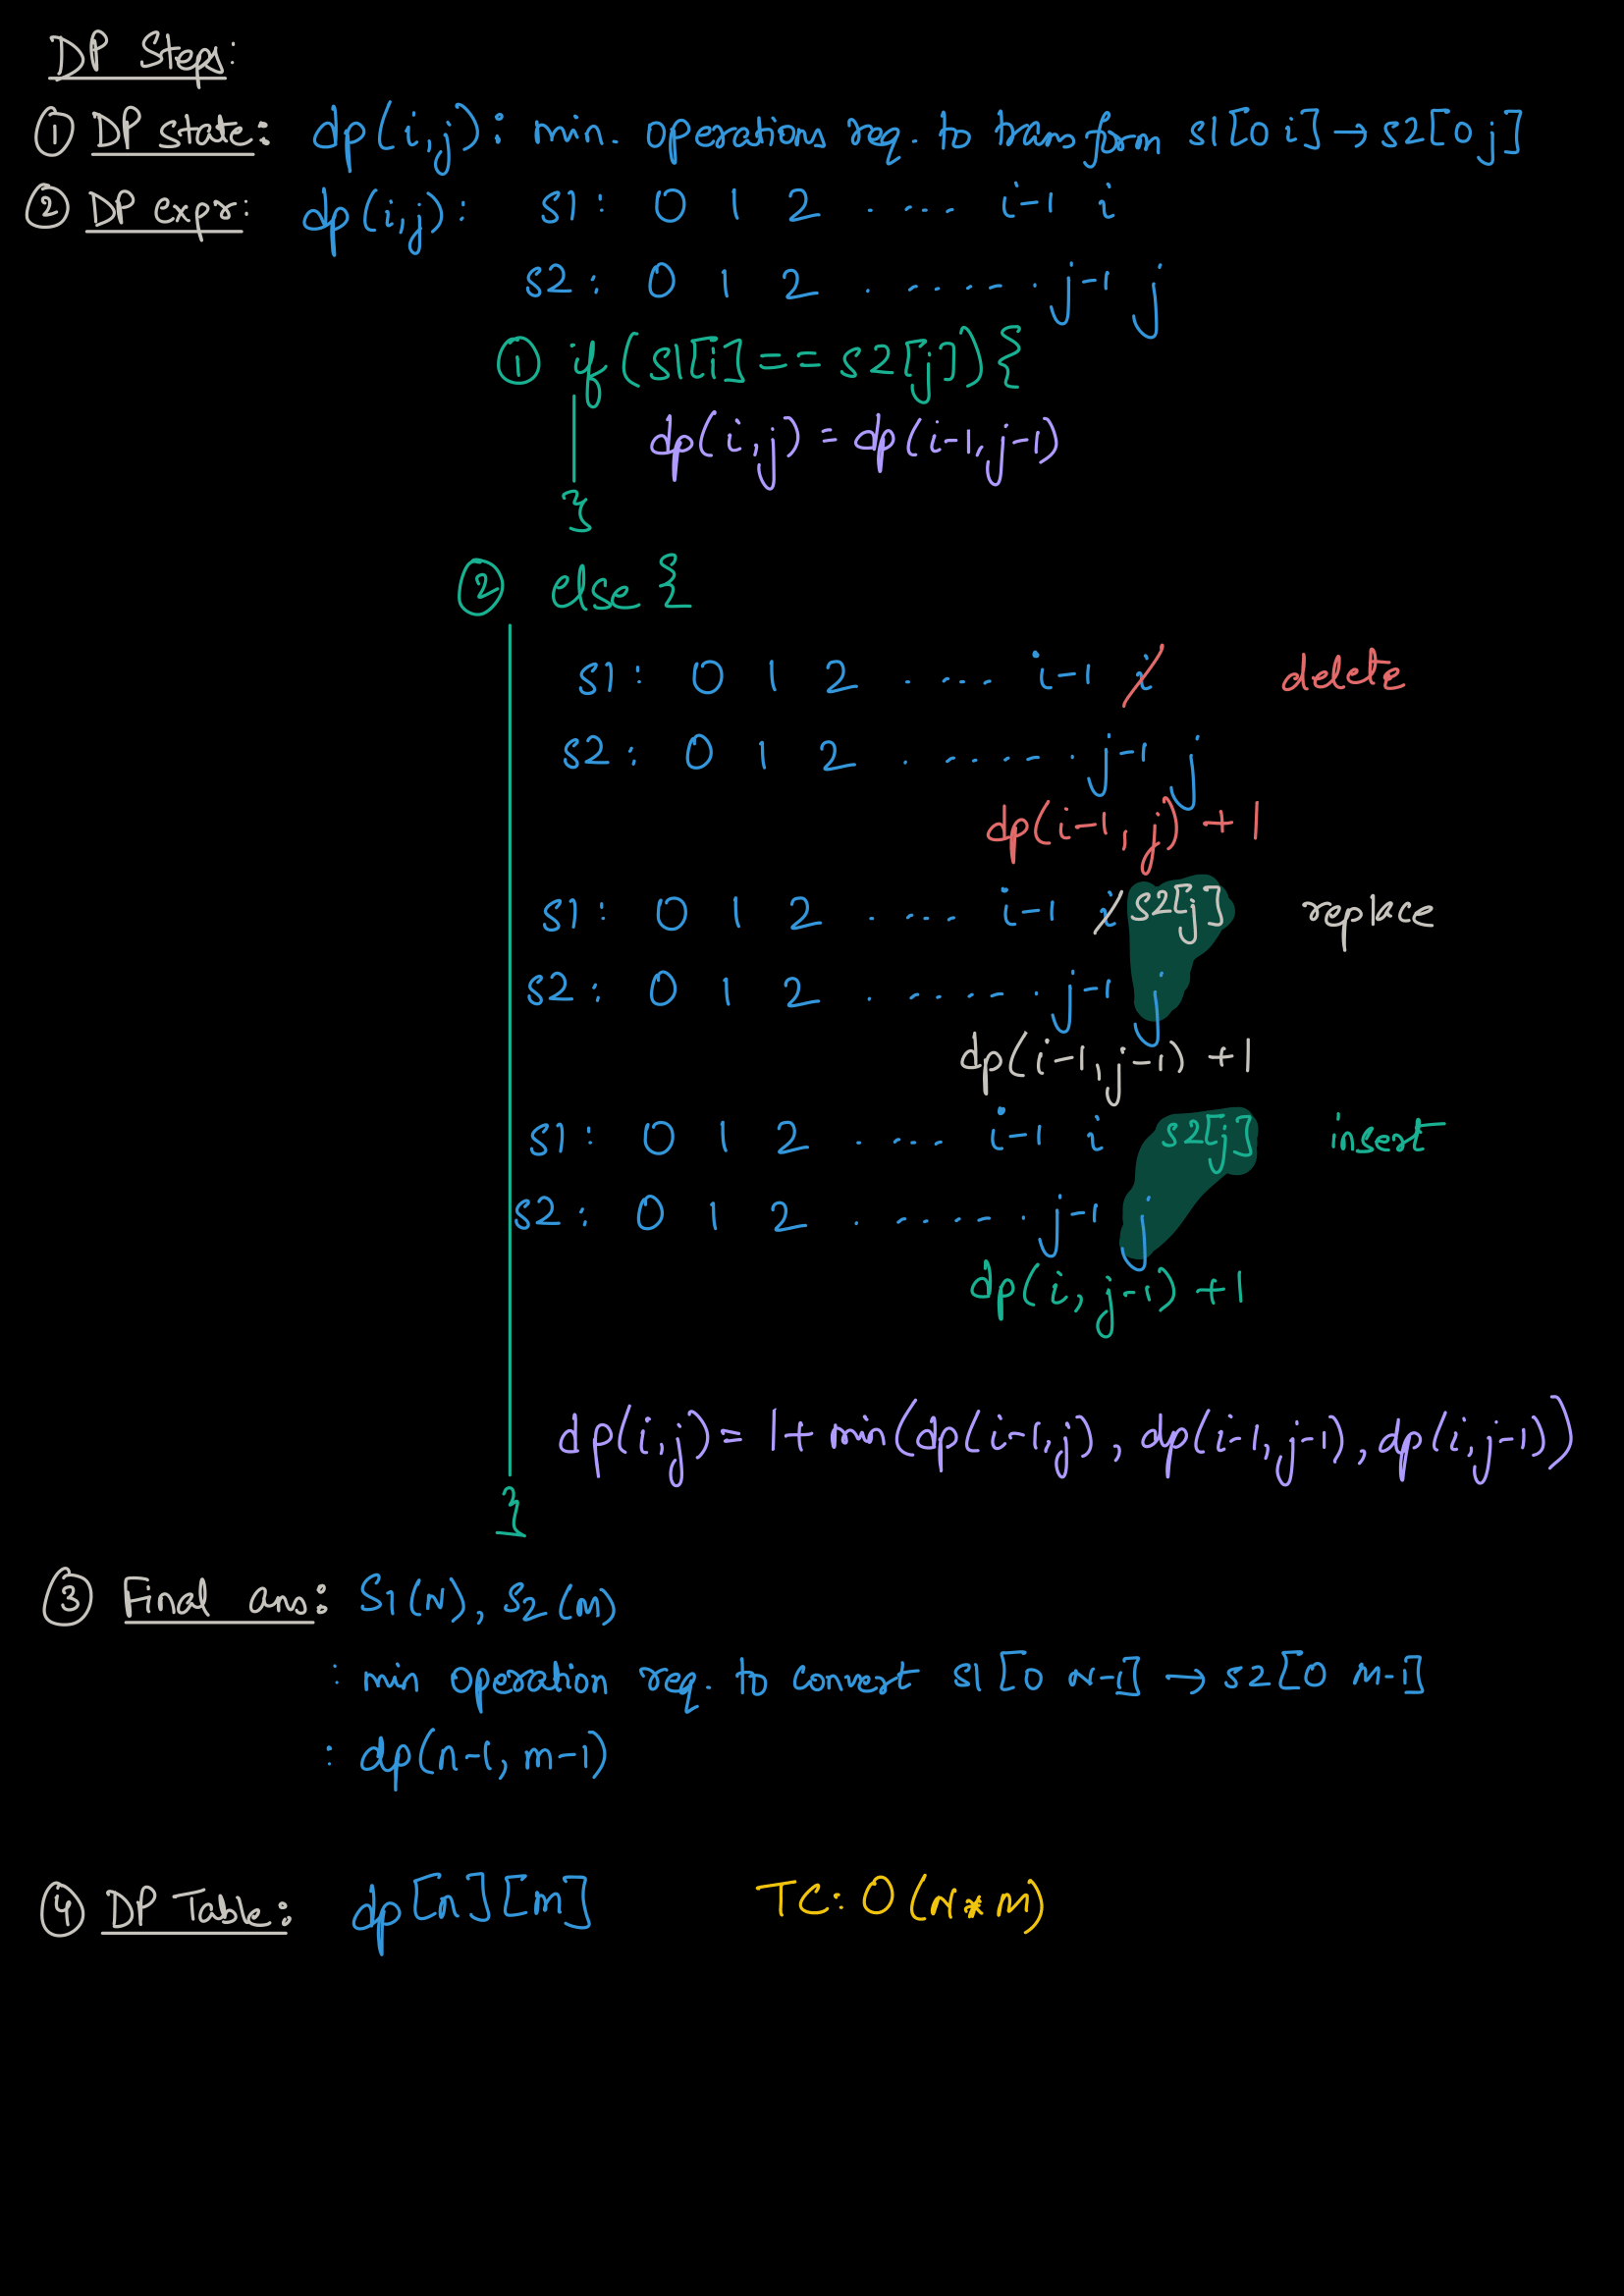 DP Steps:
① DP state: dp(i,j): min. operations req. to transform s1[0 i] → s2[0 j]
② DP expr: dp(i,j): s1: 0 1 2 . ... i-1 i
s2: 0 1 2 . ..... . j-1 j
① if (s1[i] == s2[j]) {
dp(i,j) = dp(i-1, j-1)
}
② else {
s1: 0 1 2 . ... i-1 i delete
s2: 0 1 2 . ..... . j-1 j
dp(i-1, j) + 1
s1: 0 1 2 . ... i-1 i s2[j] replace
s2: 0 1 2 . ..... . j-1 j
dp(i-1, j-1) + 1
s1: 0 1 2 . ... i-1 i s2[j] insert
s2: 0 1 2 . ..... . j-1 j
dp(i, j-1) + 1
dp(i,j) = 1 + min(dp(i-1,j), dp(i-1,j-1), dp(i,j-1))
}
③ Final ans: S1(N), S2(M)
: min operation req. to convert s1[0 N-1] → s2[0 M-1]
: dp(n-1, m-1)
④ DP Table: dp[n][m] TC: O(N*M)